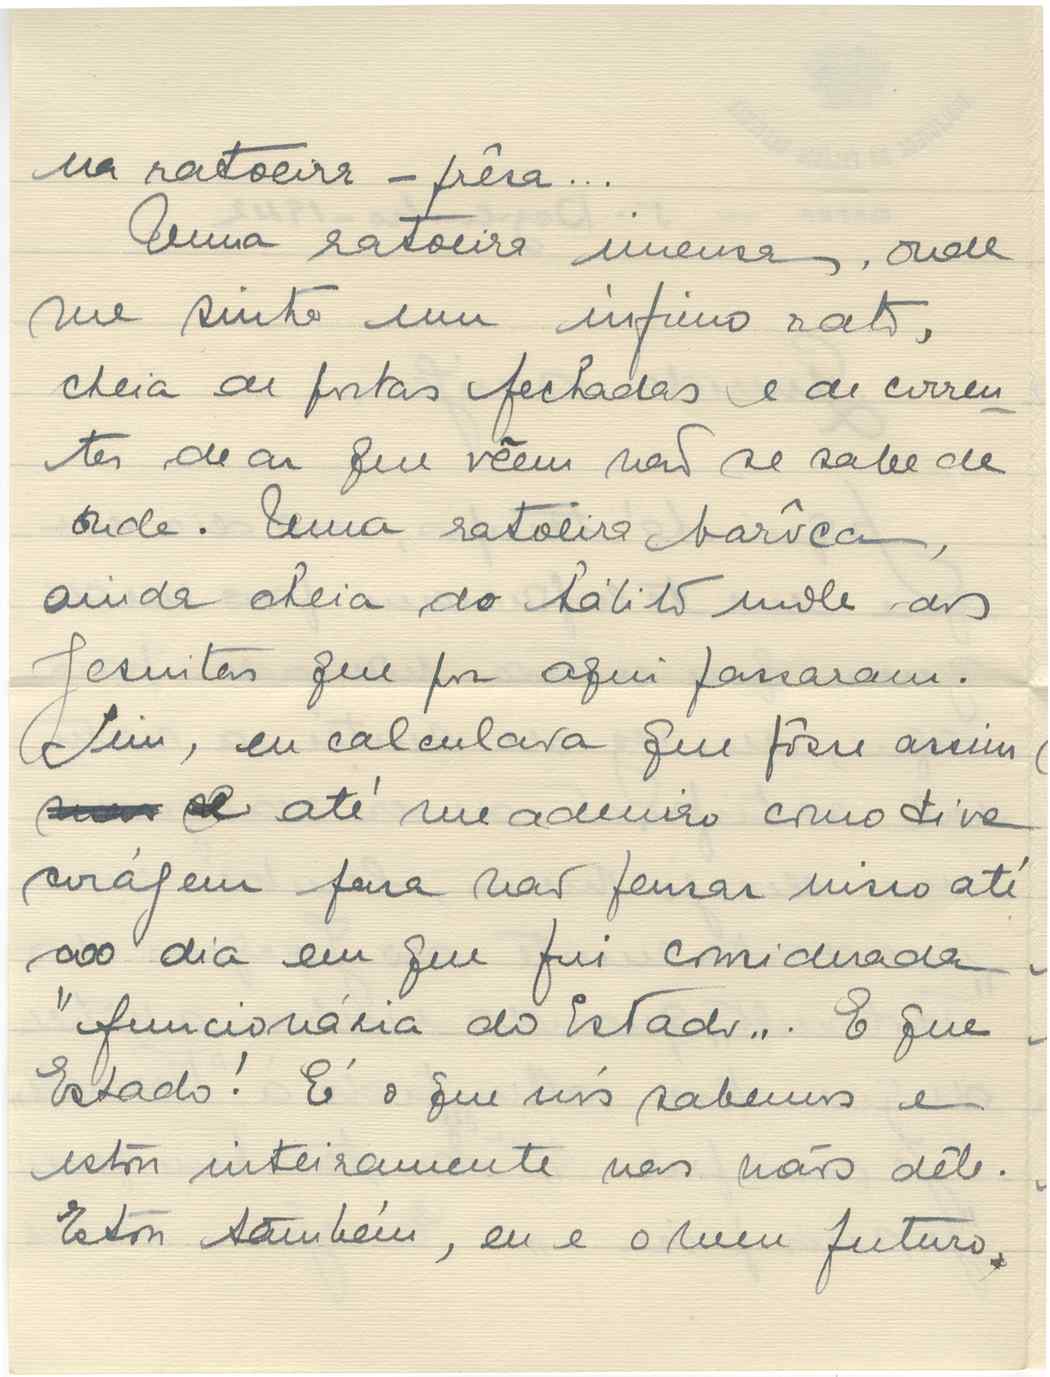 na ratoeira – prêsa...
Uma ratoeira imensa, onde
me sinto um ínfimo rato,
cheia de portas fechadas e de corren-
tes de ar que vêem não se sabe de
onde. Uma ratoeira barôca,
ainda cheia do hálito mole dos
Jesuitas que por aqui passaram.
Sim, eu calculava que fôsse assim
e até me admiro como tive
corágem para não pensar nisso até
ao dia em que fui considerada
"funcionária do Estado". E que
Estado! É o que nós sabemos e
estou inteiramente nas mãos dêle.
Estou também, eu e o meu futuro.